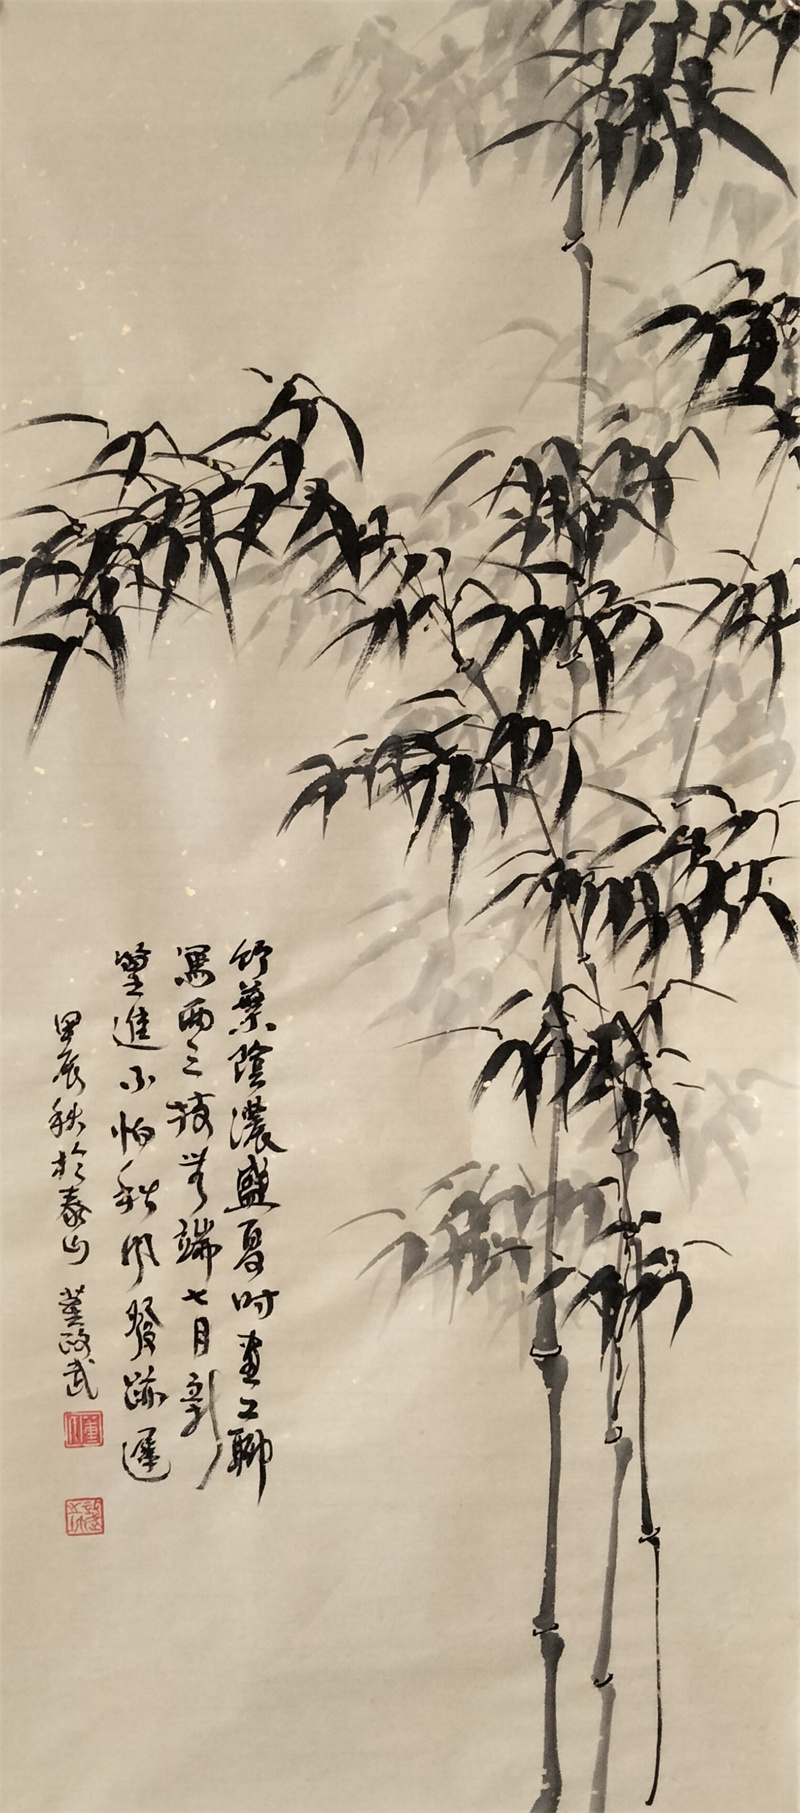 竹葉陰濃盛夏時畫工聊
寫兩三枝無端七月新
篁進不怕秋風發跡遲
甲辰秋於泰山 董政武